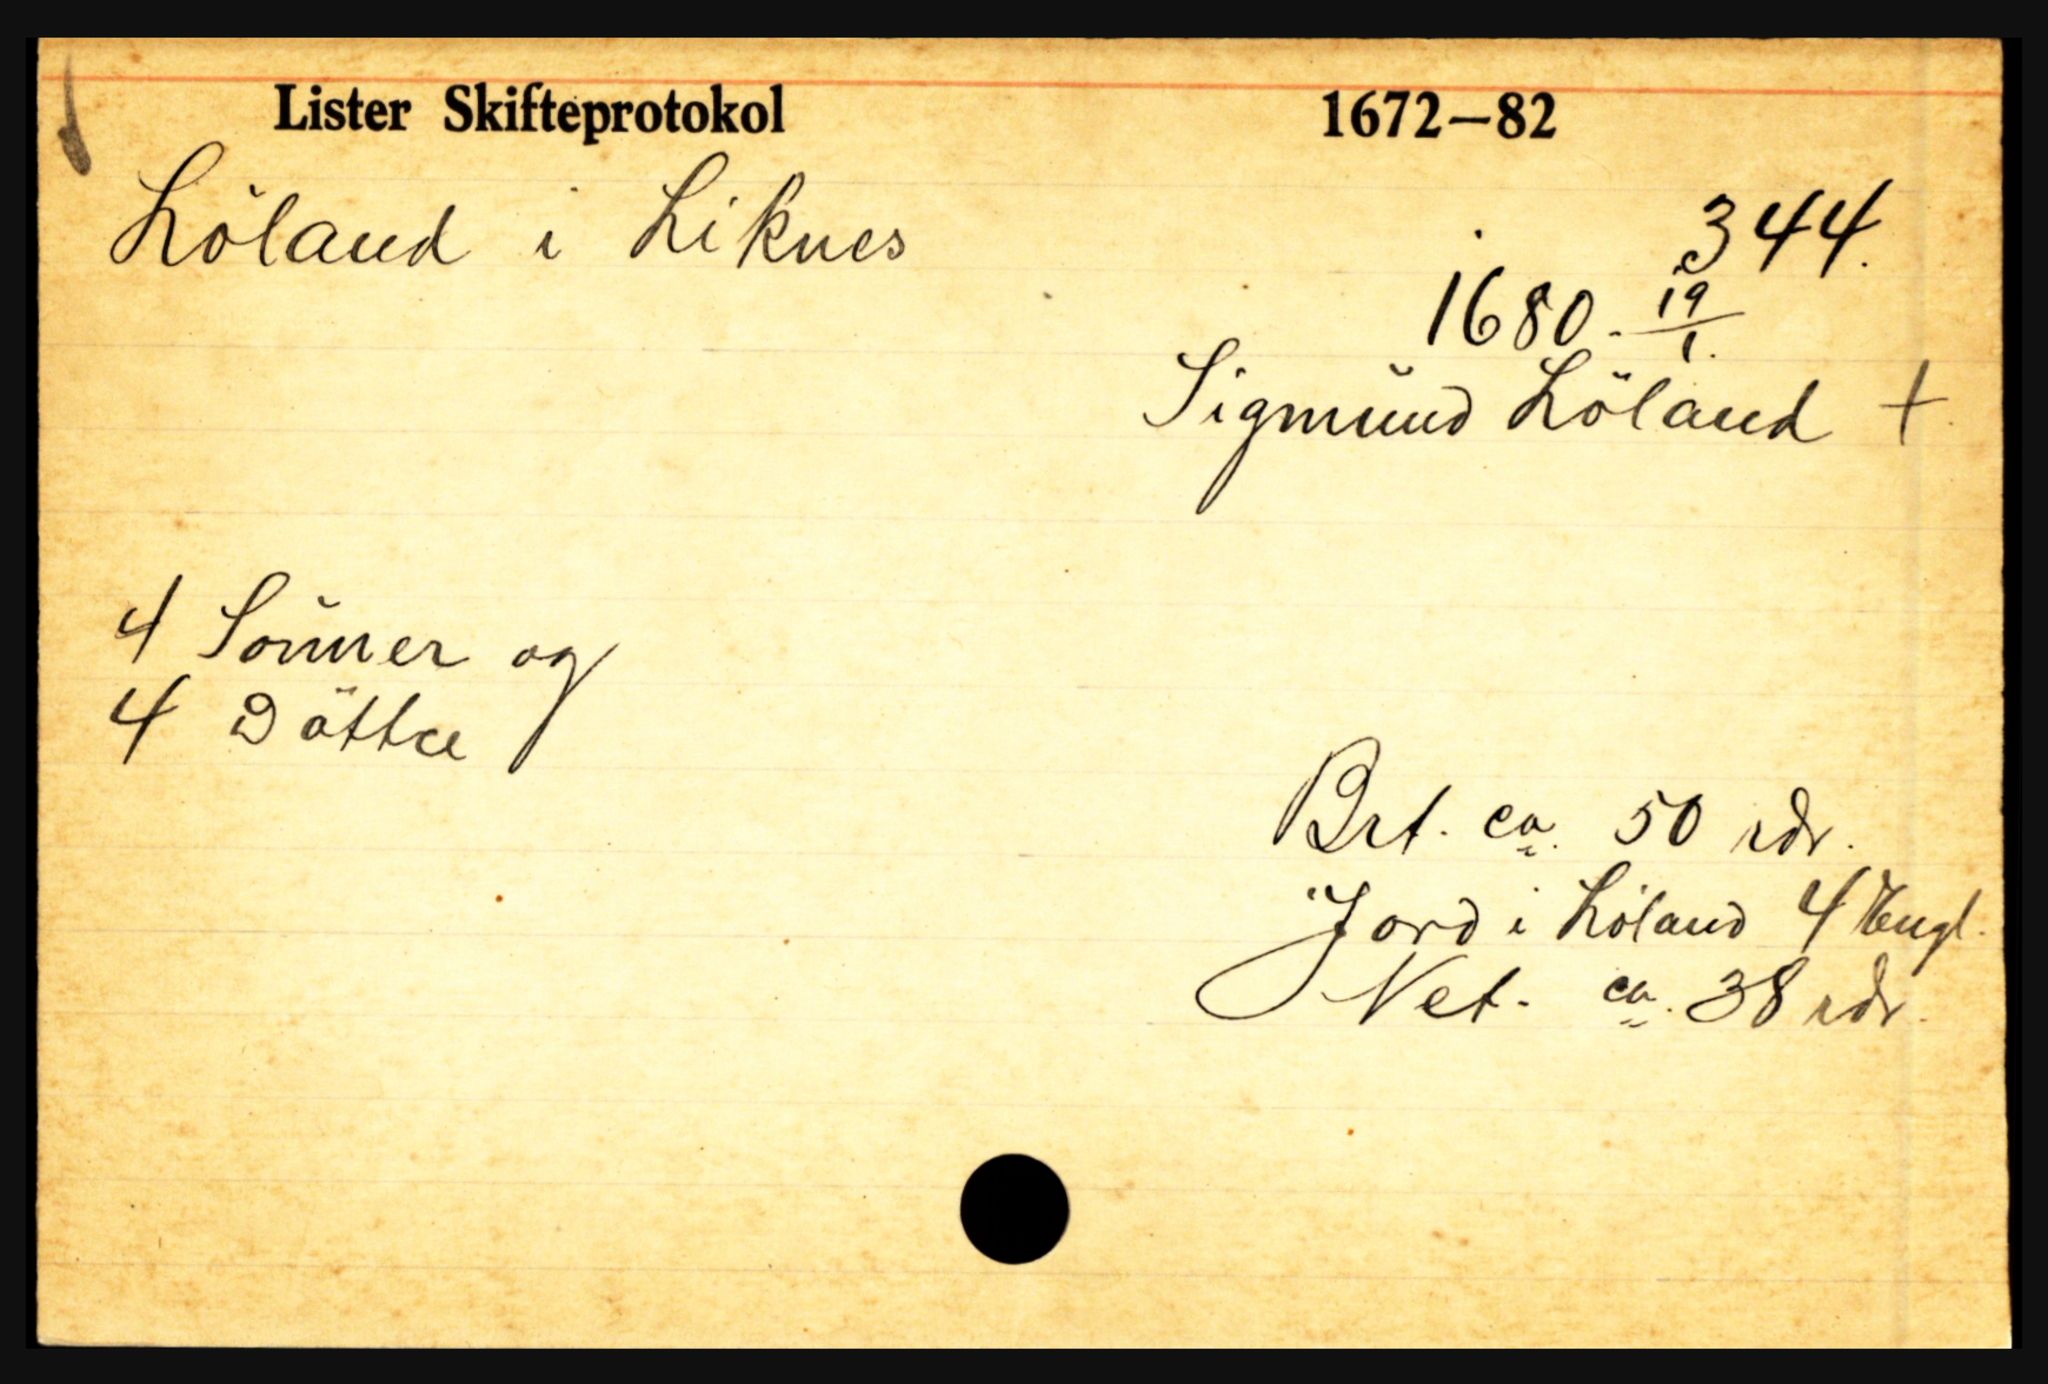 Lister Skifteprotokol 1672—82
Löland i Liknes
344.
1680. 19/1.
Sigmund Löland +
4 Sönner og
4 Döttre
Brt. ca. 50 rdr.
Jord i Löland 4 Engl.
Net. ca. 38 rdr.